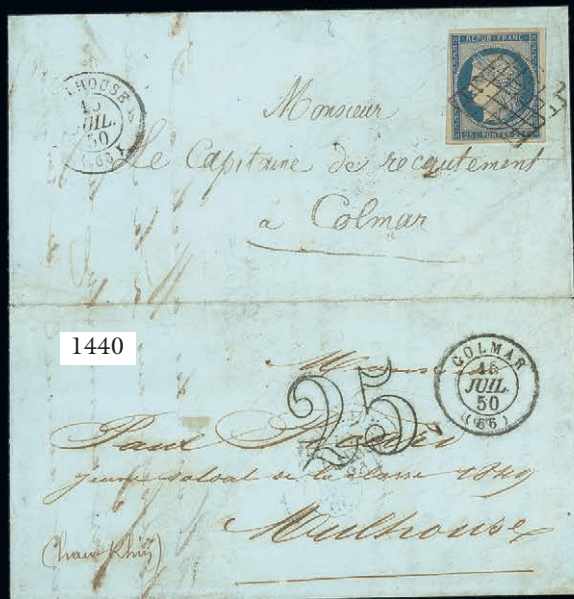 REPUB. FRANC.
25 C POSTES 25 C
HOUSE
15
JUIL.
50
(66)
Monsieur
Le Capitaine de recrutement
à Colmar
1440
COLMAR
15
JUIL.
50
(66)
25
Paul
jeune soldat de la classe 1849
Mulhouse
(haut Rhin)